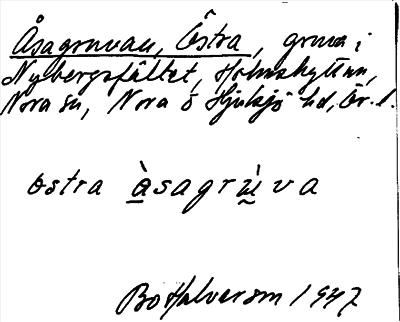 Åsagruvan, Östra, gruva i
Nybergsfältet, Holmshyttan,
Nora sn, Nora o Hjulsjö hd, Ör. l.
östra àsagrùva
Bo Halvarson 1947